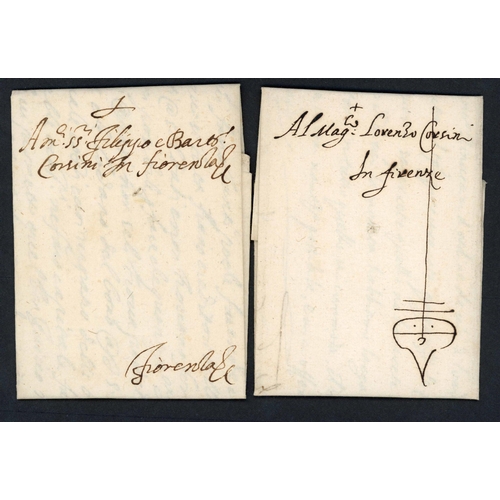 A m.ci ss.ri Filippo e Bart.o
Corsini In fiorenza
Fiorenza
Al Mag.co Lorenzo Corsini
In firenze